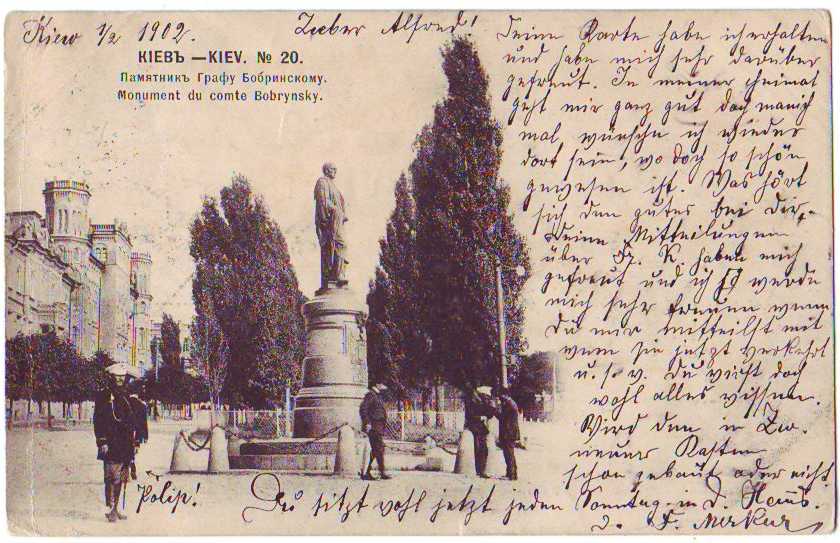 Kiew 1/2 1902.
Lieber Alfred!
КІЕВЪ —KIEV. № 20.
Памятникъ Графу Бобринскому.
Monument du comte Bobrynsky.
Deine Karte habe ich erhalten
und habe mich sehr darüber
gefreut. In meiner Heimat
geht mir ganz gut doch manch
mal wünsche ich wieder
dort sein, wo doch so schön
gewesen ist. Was hört
sich den gutes bei Dir.
Deine Mitteilungen
über K. haben mich
gefreut und ich werde
mich sehr freuen wenn
Du mir mitteilst mit
wem sie jetzt verkehrt
u. s. w. Du wirst doch
wohl alles wissen.
Wird den in
neuer Kasten
schon gebaut oder nicht
Polip!
Du sitzt wohl jetzt jeden Sonntag in d.